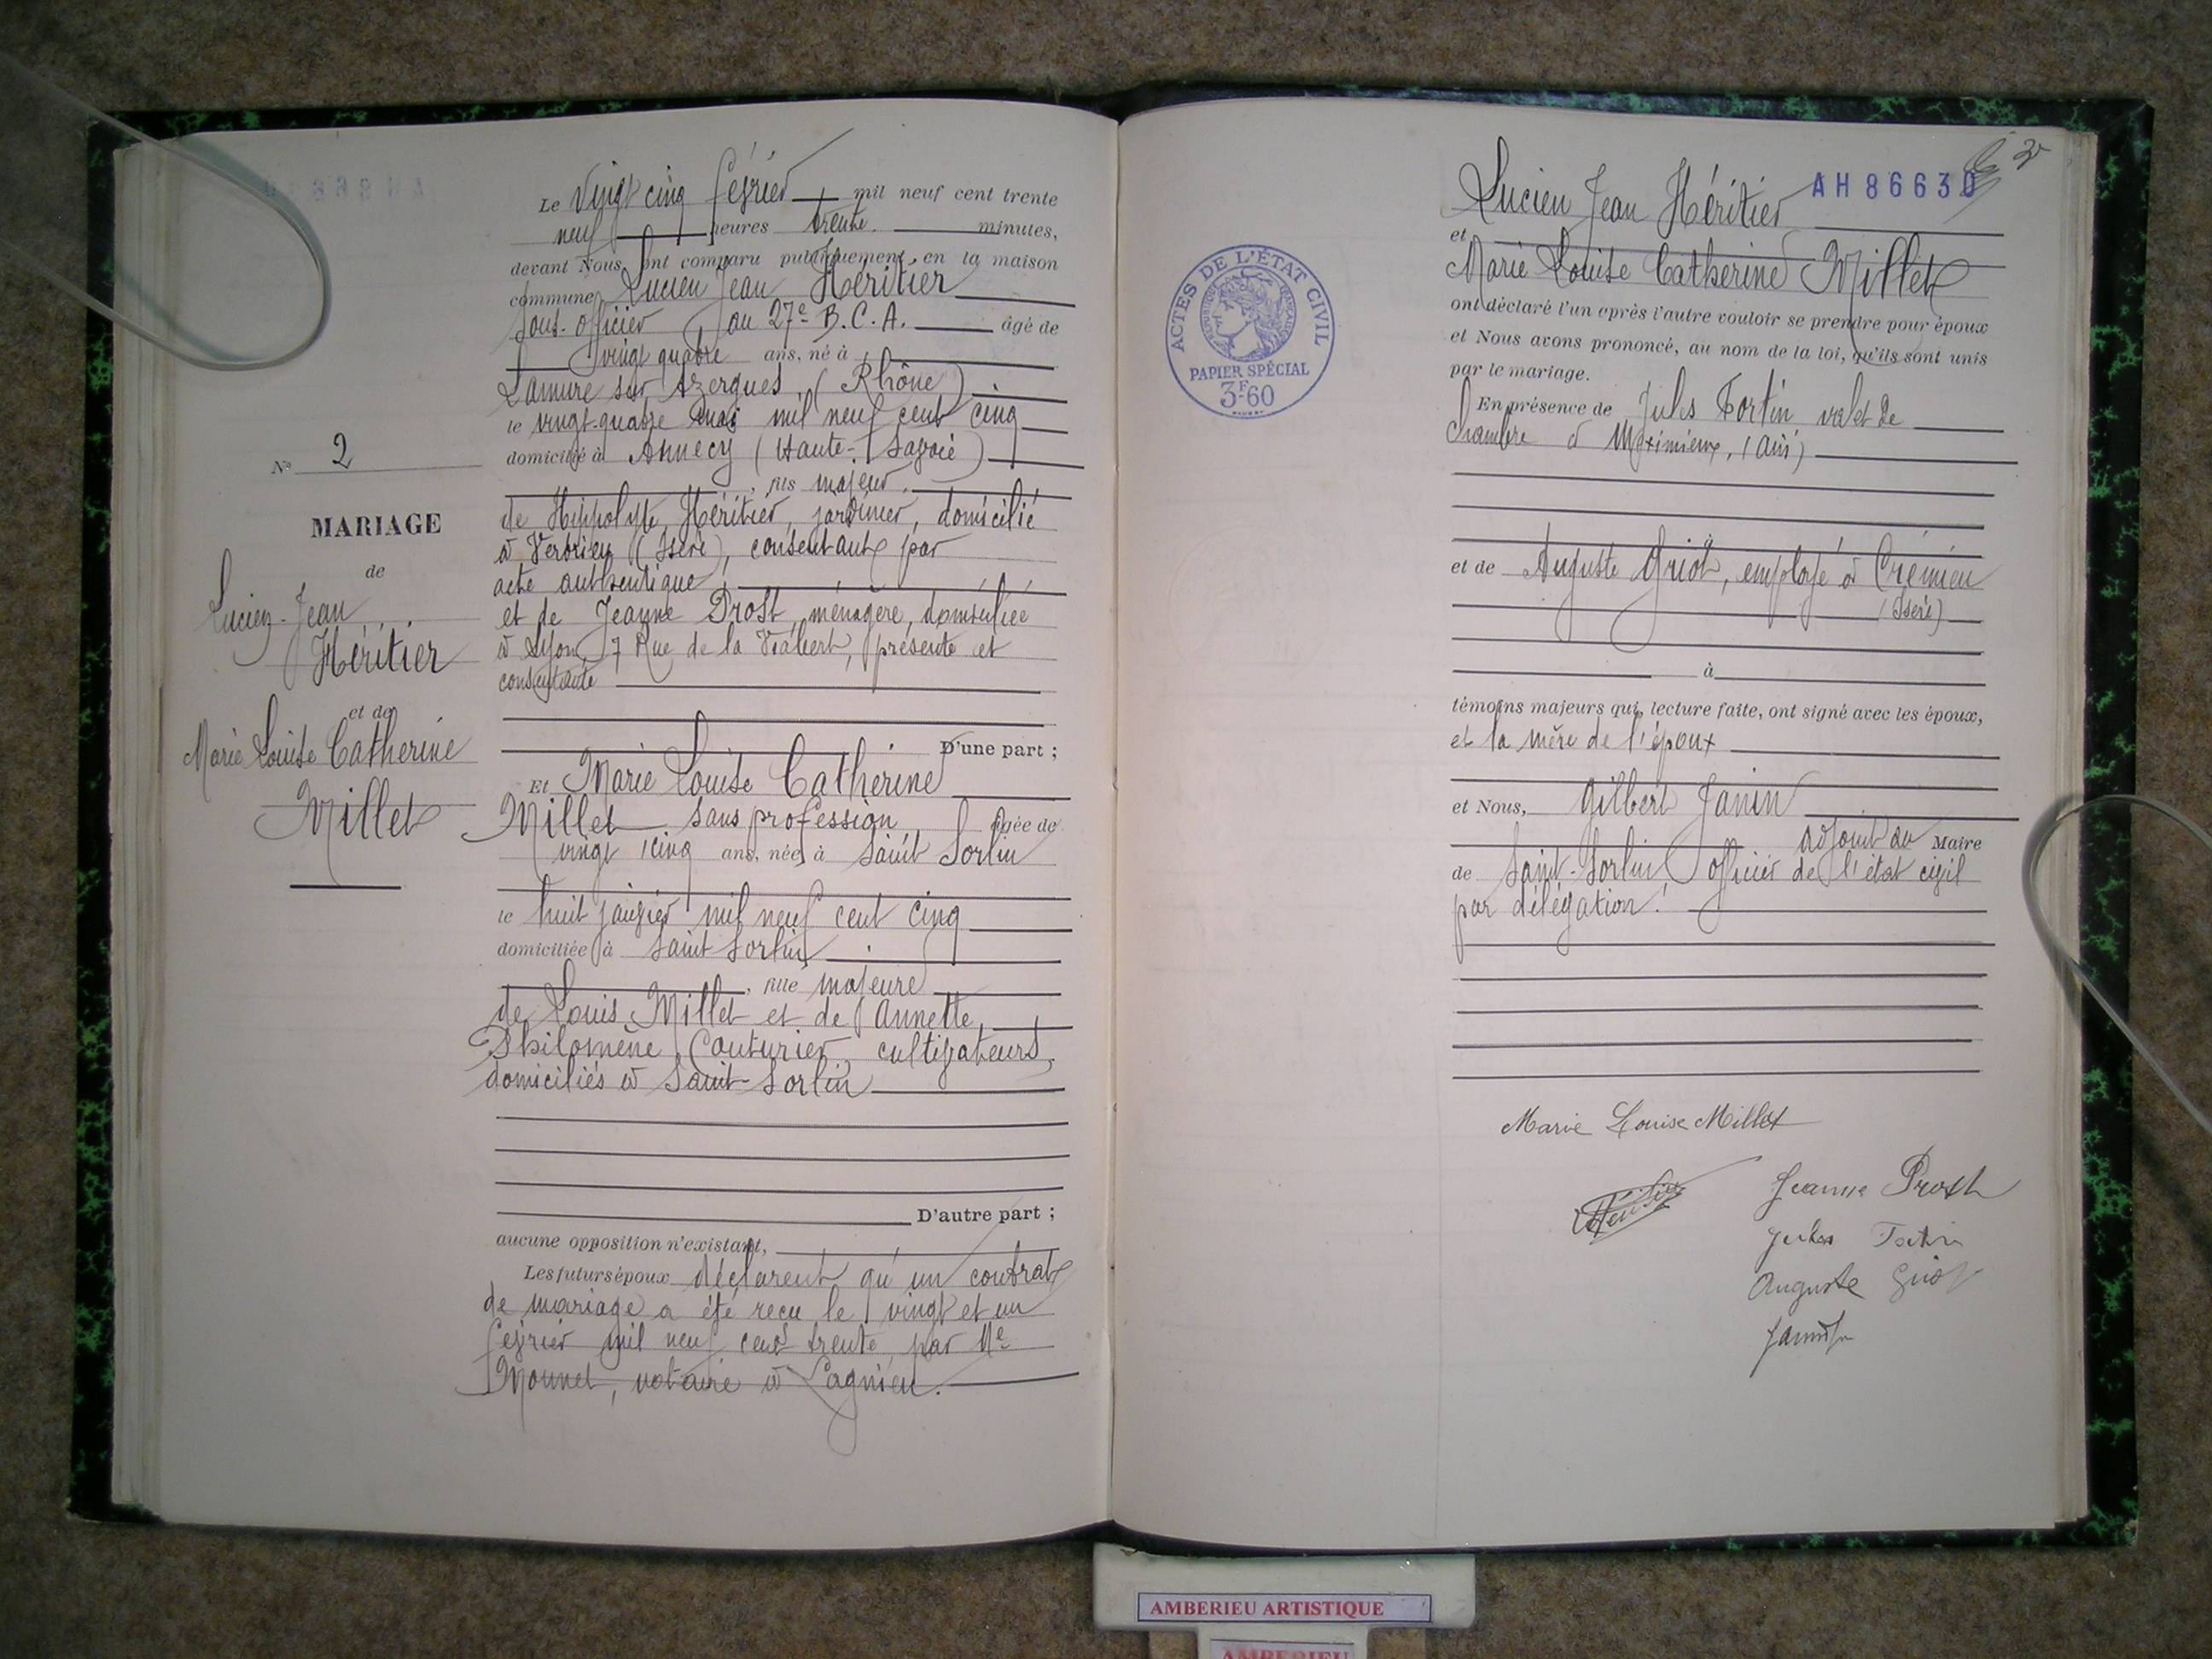 Le vingt cinq février mil neuf cent trente
neuf heures trente minutes,
devant Nous ont comparu publiquement en la maison
commune Lucien Jean Héritier
sous-officier au 27e B.C.A. âgé de
vingt quatre ans, né à
Lamure sur Azergues (Rhône)
le vingt-quatre mai mil neuf cent cinq
domicilié à Annecy (Haute-Savoie)
, fils majeur
de Hippolyte Héritier, jardinier, domicilié
à (Isère), consentant par
acte authentique
et de Jeanne Prost, ménagère, domiciliée
à Lyon, 7 Rue de la présente et
consentante
D'une part ;
Et Marie Louise Catherine
Millet sans profession âgée de
vingt cinq ans, née à Saint Sorlin
le huit janvier mil neuf cent cinq
domiciliée à Saint Sorlin
, fille majeure
de Louis Millet et de Annette
Philomène Couturier, cultivateurs,
domiciliés à Saint-Sorlin
D'autre part ;
aucune opposition n'existant,
Les futurs époux déclarent qu'un contrat
de mariage a été reçu le vingt et un
février mil neuf cent trente par Me
Monnet, notaire à Lagnieu.
No 2
MARIAGE
de
Lucien-Jean
Héritier
et de
Marie Louise Catherine
Millet
AH 86630
Lucien Jean Héritier
et
Marie Louise Catherine Millet
ont déclaré l'un après l'autre vouloir se prendre pour époux
et Nous avons prononcé, au nom de la loi, qu'ils sont unis
par le mariage.
En présence de Jules Fortin valet de
chambre à Meximieux, (Ain)
et de Auguste Griot, employé à Crémieu
(Isère)
à
témoins majeurs qui, lecture faite, ont signé avec les époux,
et la mère de l'époux
et Nous, Gilbert Janin
adjoint au Maire
de Saint-Sorlin officier de l'état civil
par délégation.
Marie Louise Millet
Héritier
Jeanne Prost
Jules Fortin
Auguste Griot
Janin
ACTES DE L'ÉTAT CIVIL
RÉPUBLIQUE FRANÇAISE
PAPIER SPÉCIAL
3F60
AMBERIEU ARTISTIQUE
AMBERIEU